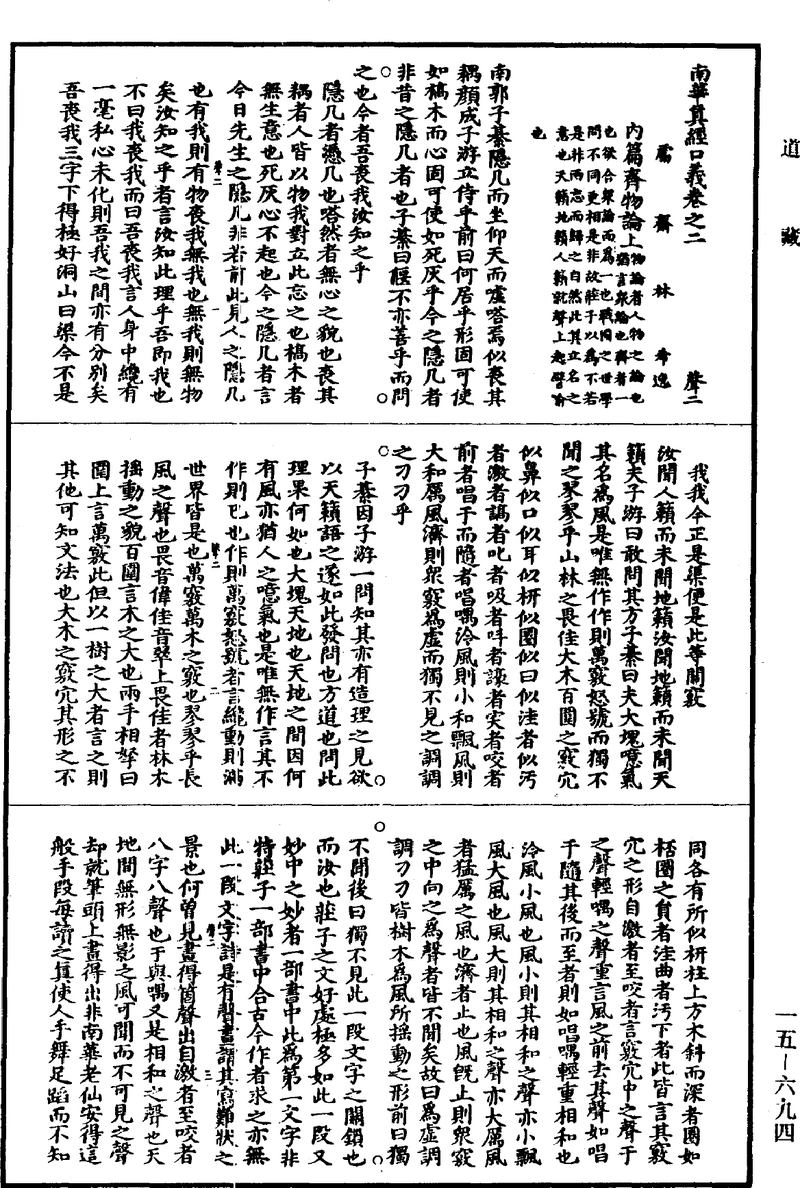 道藏
南華真經口義卷之二 聲二
鬳齋林希逸
內篇齊物論上 物論者人物之論也
猶言衆論也齊者一
也欲合衆論而為一也戰國之世學
問不同更相是非故莊子以為不若
是非兩忘而歸之自然此其立名之
意也天籟地籟人籟就聲上起譬喻
也
南郭子綦隱几而坐仰天而噓嗒焉似喪其
耦顏成子游立侍乎前曰何居乎形固可使
如槁木而心固可使如死灰乎今之隱几者
非昔之隱几者也子綦曰偃不亦善乎而問
之也今者吾喪我汝知之乎
隱几者憑几也嗒然者無心之貌也喪其
耦者人皆以物我對立此忘之也槁木者
無生意也死灰心不起也今之隱几者言
今日先生之隱几非若前此見人之隱几
聲二 一
也有我則有物喪我無我也無我則無物
矣汝知之乎者言汝知此理乎吾即我也
不曰我喪我而曰吾喪我言人身中纔有
一毫私心未化則吾我之間亦有分別矣
吾喪我三字下得極好洞山曰渠今不是
我我今正是渠便是此等關竅
汝聞人籟而未聞地籟汝聞地籟而未聞天
籟夫子游曰敢問其方子綦曰夫大塊噫氣
其名為風是唯無作作則萬竅怒號而獨不
聞之翏翏乎山林之畏佳大木百圍之竅穴
似鼻似口似耳似枅似圈似臼似洼者似污
者激者謞者叱者吸者叫者譹者宎者咬者
前者唱于而隨者唱喁泠風則小和飄風則
大和厲風濟則衆竅為虛而獨不見之調調
之刁刁乎
子綦因子游一問知其亦有造理之見欲
以天籟語之遂如此發問也方道也問此
理果何如也大塊天地也天地之間因何
有風亦猶人之噫氣也是唯無作言其不
作則已也作則萬竅怒號者言纔動則滿
聲二 二
世界皆是也萬竅萬木之竅也翏翏乎長
風之聲也畏音偉佳音翠上畏佳者林木
搖動之貌百圍言木之大也兩手相拏曰
圍上言萬竅此但以一樹之大者言之則
其他可知文法也大木之竅穴其形之不
同各有所似枅柱上方木斜而深者圈如
桮圈之員者洼曲者污下者此皆言其竅
穴之形自激者至咬者言竅穴中之聲于
之聲輕喁之聲重言風之前去其聲如唱
于隨其後而至者則如唱喁輕重相和也
泠風小風也風小則其相和之聲亦小飄
風大風也風大則其相和之聲亦大厲風
者猛厲之風也濟者止也風旣止則衆竅
之中向之為聲者皆不聞矣故曰為虛調
調刁刁皆樹木為風所搖動之形前曰獨
不聞後曰獨不見此一段文字之關鎖也
而汝也莊子之文好處極多如此一段又
妙中之妙者一部書中此為第一文字非
特莊子一部書中合古今作者求之亦無
此一段文字詩是有聲畫謂其寫難狀之
聲二 三
景也何曾見畫得箇聲出自激者至咬者
八字八聲也于與喁又是相和之聲也天
地間無形無影之風可聞而不可見之聲
却就筆頭上畫得出非南華老仙安得這
般手段每讀之真使人手舞足蹈而不知
一五—六九四